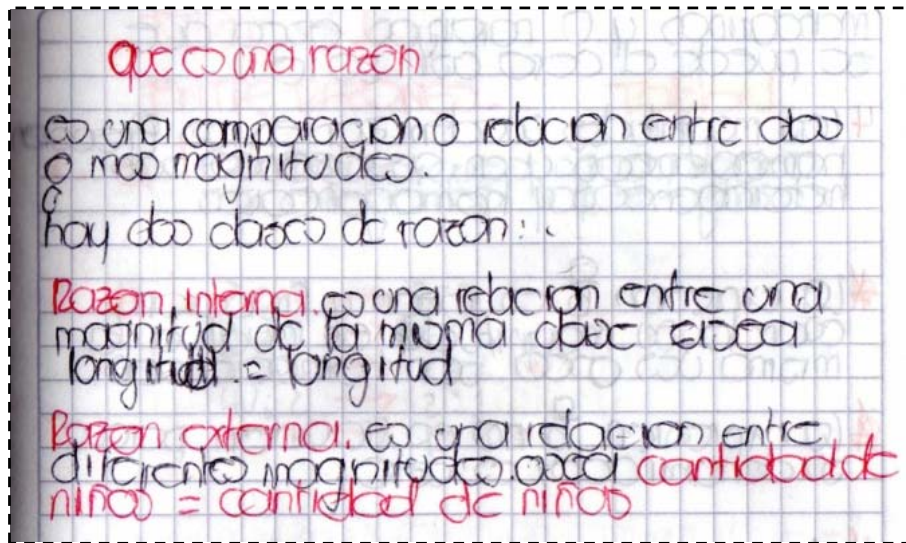 que es una razon
es una comparacion o relacion entre dos
o mas magnitudes.
hay dos clases de razon:.
Razon interna. es una relacion entre una
magnitud de la misma clase osea
longitud = longitud
Razon externa. es una relacion entre
diferentes magnitudes. osea cantidad de
niños = cantidad de niños